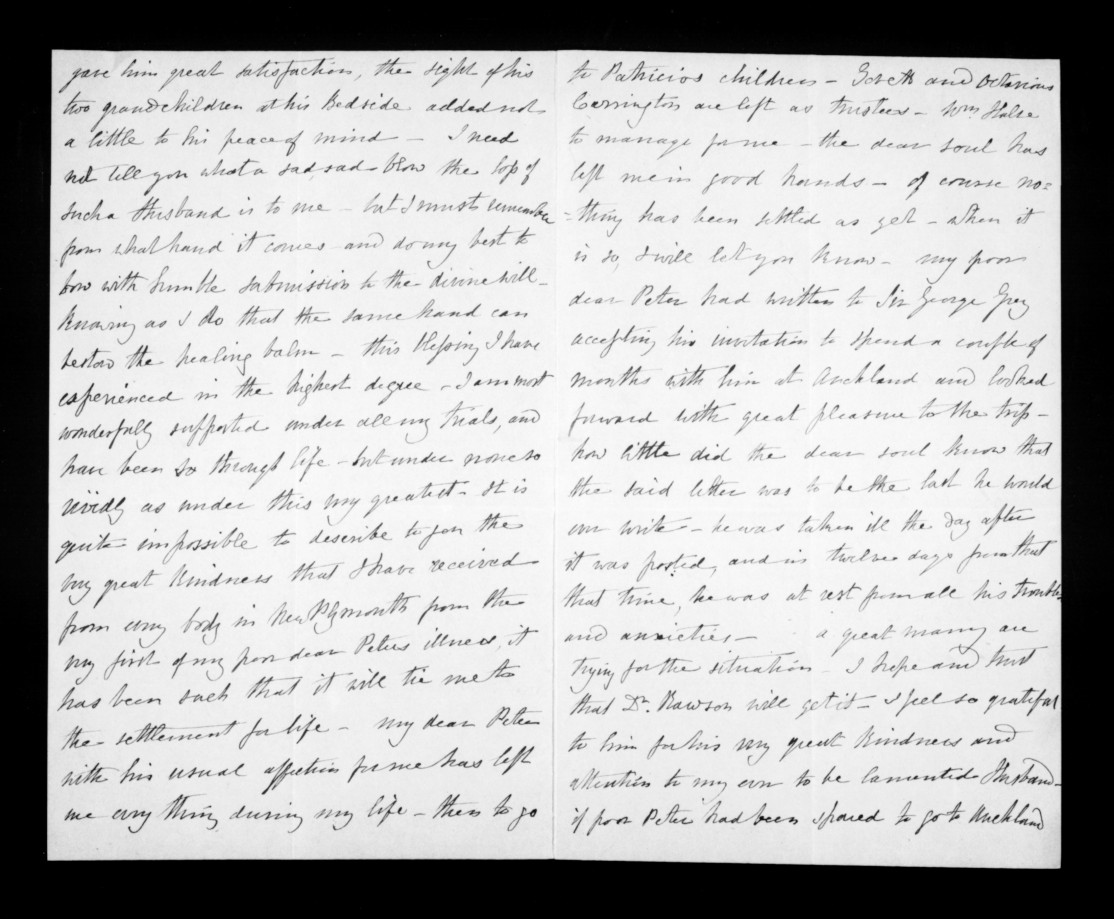 gave him great satisfaction, the sight of his
two grandchildren at his Bedside added not
a little to his peace of mind – I need
not tell you what a sad, sad blow the loss of
such a Husband is to me – but I must remember
from what hand it comes – and do my best to
bow with humble submission to the divine will –
knowing as I do that the same hand can
bestow the healing balm – this blessing I have
experienced in the highest degree – I am most
wonderfully supported under all my trials, and
have been so through life – but under none so
vividly as under this my greatest – It is
quite impossible to describe to you the
very great kindness that I have received
from every body in New Plymouth from the
very first of my poor dear Peters illness, it
has been such that it will tie me to
the settlement for life – my dear Peter
with his usual affection for me has left
me every thing during my life – then to go
to Patricios children – Govett and Octavious
Carrington are left as trustees – Wm Halse
to manage for me – the dear soul has
left me in good hands – of course no=
=thing has been settled as yet – when it
is so, I will let you know – my poor
dear Peter had written to Sir George Grey
accepting his invitation to spend a couple of
months with him at Auckland and looked
forward with great pleasure to the trip –
how little did the dear soul know that
the said letter was to be the last he would
ever write – he was taken ill the day after
it was posted, and in twelve days from that
that time, he was at rest from all his troubles
and anxieties – a great many are
trying for the situation – I hope and trust
that Dr. Rawson will get it – I feel so grateful
to him for his very great kindness and
attention to my ever to be lamented Husband –
if poor Peter had been spared to go to Auckland